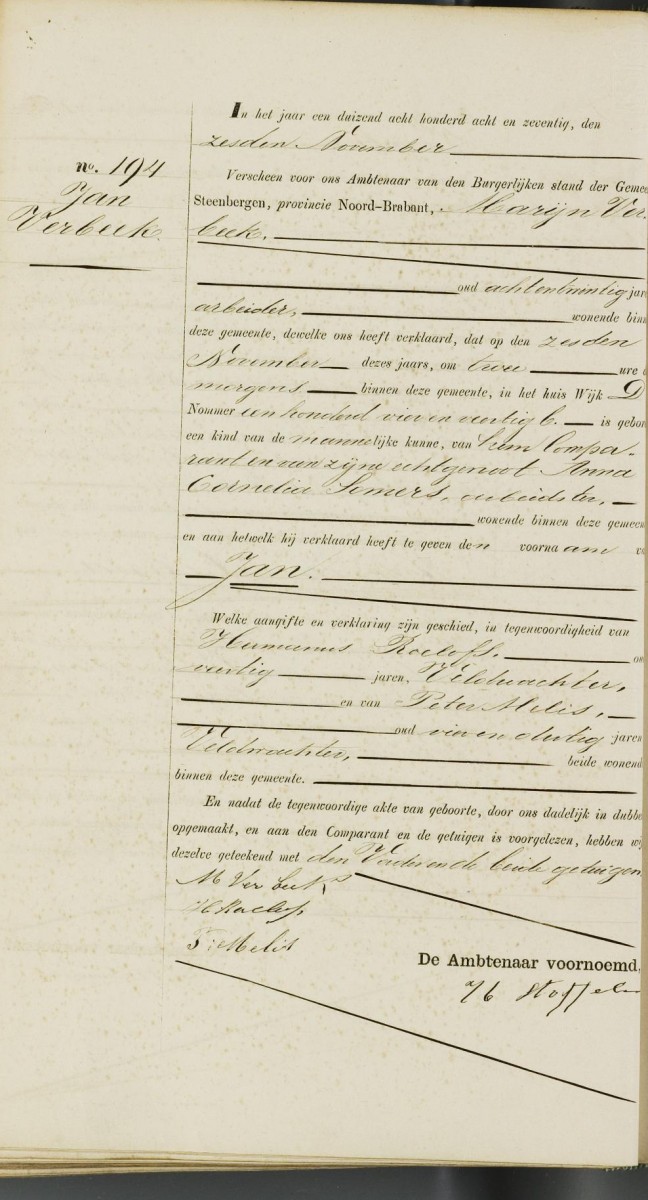 In het jaar een duizend acht honderd acht en zeventig, den
zesden November
no. 194
Jan
Verbeek.
Verscheen voor ons Ambtenaar van den Burgerlijken stand der Gemee
Steenbergen, provincie Noord-Brabant, Marijn Ver-
beek.
oud achtentwintig jare
arbeider, wonende binn
deze gemeente, dewelke ons heeft verklaard, dat op den zesden
November dezes jaars, om twee ure d
morgens binnen deze gemeente, in het huis Wijk D
Nommer een honderd vier en veertig b. is gebor
een kind van de mannelijke kunne, van hem Compa-
rant en van zijne echtgenoot Anna
Cornelia Somers, arbeidster,
wonende binnen deze gemeen
en aan hetwelk hij verklaard heeft te geven den voornaam v
Jan.
Welke aangifte en verklaring zijn geschied, in tegenwoordigheid van
Hermanus Roeloffs. ou
veertig jaren, Veldwachter,
en van Peter Melis,
oud vier en dertig jaren
Veldwachter, beide wonend
binnen deze gemeente.
En nadat de tegenwoordige akte van geboorte, door ons dadelijk in dubbe
opgemaakt, en aan den Comparant en de getuigen is voorgelezen, hebben wi
dezelve geteekend met den Vader en de beide getuigen
M Verbeek
P. Melis
De Ambtenaar voornoemd,